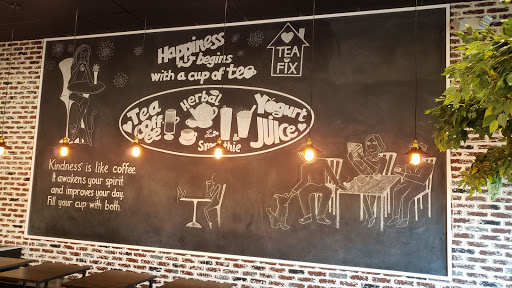 Happiness
begins
with a cup of tea
TEA
FIX
Tea
Coffee
Herbal
Smoothie
Yogurt
Juice
Kindness is like coffee.
It awakens your spirit
and improves your day.
Fill your cup with both.